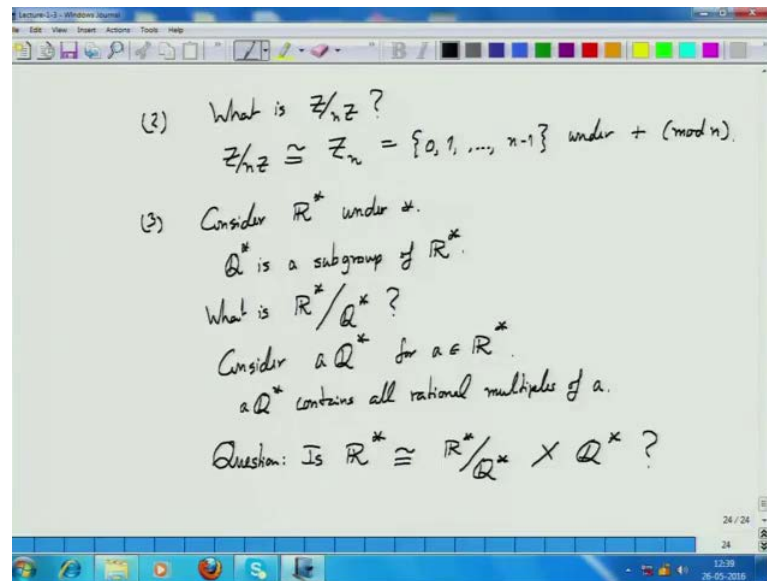 Lecture-1-3 - Windows Journal
File Edit View Insert Actions Tools Help
(2) What is Z/nZ ?
Z/nZ ≅ Zn = {0, 1, ..., n-1} under + (mod n).
(3) Consider R* under *.
Q* is a subgroup of R*.
What is R*/Q* ?
Consider aQ* for a ∈ R*.
aQ* contains all rational multiples of a.
Question: Is R* ≅ R*/Q* × Q* ?
24 / 24
24
12:39
26-05-2016